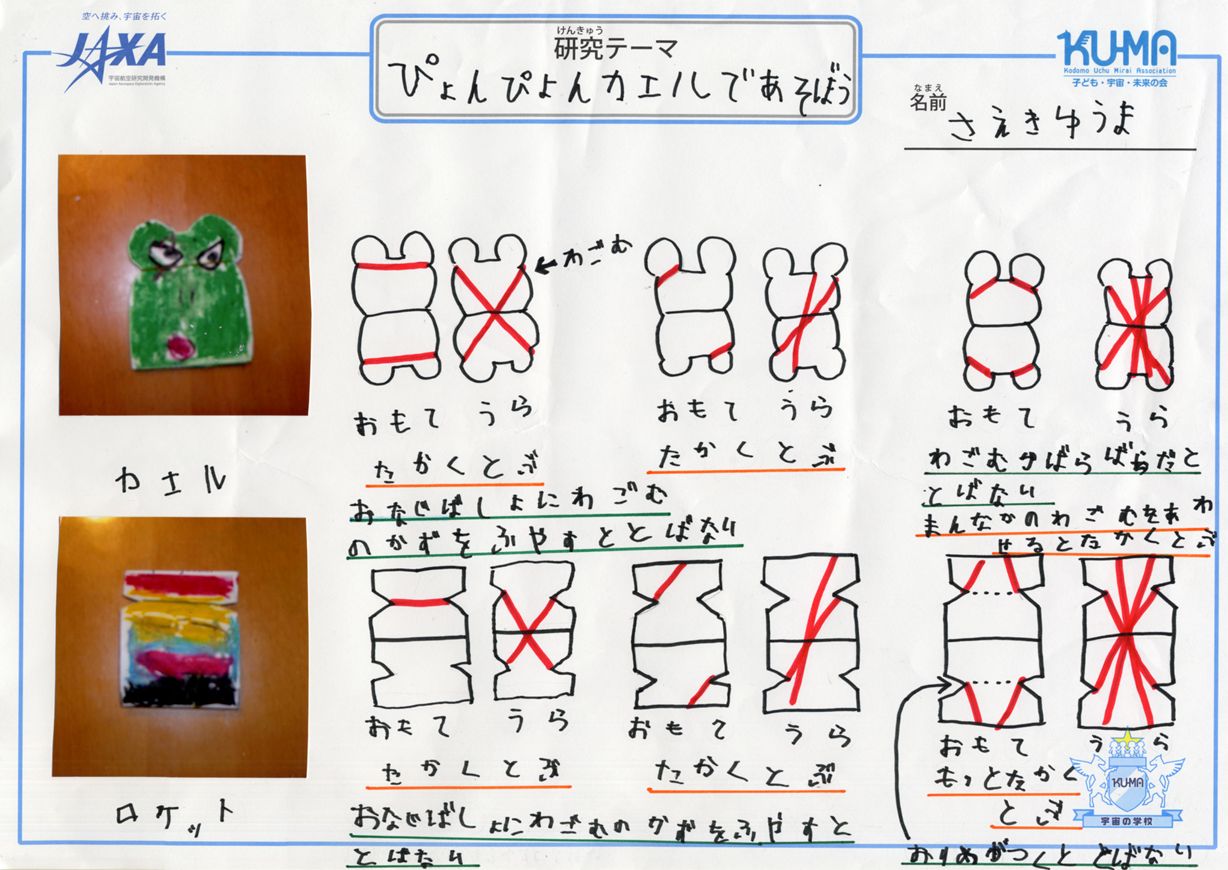 空へ挑み、宇宙を拓く
JAXA
宇宙航空研究開発機構
Japan Aerospace Exploration Agency
けんきゅう
研究テーマ
ぴょんぴょんカエルであそぼう
KU-MA
Kodomo Uchu Mirai Association
子ども・宇宙・未来の会
なまえ
名前
さえきゆうま
わごむ
おもて うら
おもて うら
おもて うら
カエル
たかくとぶ
たかくとぶ
おなじばしょにわごむ
のかずをふやすととばない
わごむがばらばらだと
とばない
まんなかのわごむをあわ
せるとたかくとぶ
おもて うら
おもて うら
おもて うら
ロケット
たかくとぶ
たかくとぶ
もっとたかく
とぶ
おなじばしょにわごむのかずをふやすと
とばない
おりめがつくととばない
KU-MA
宇宙の学校